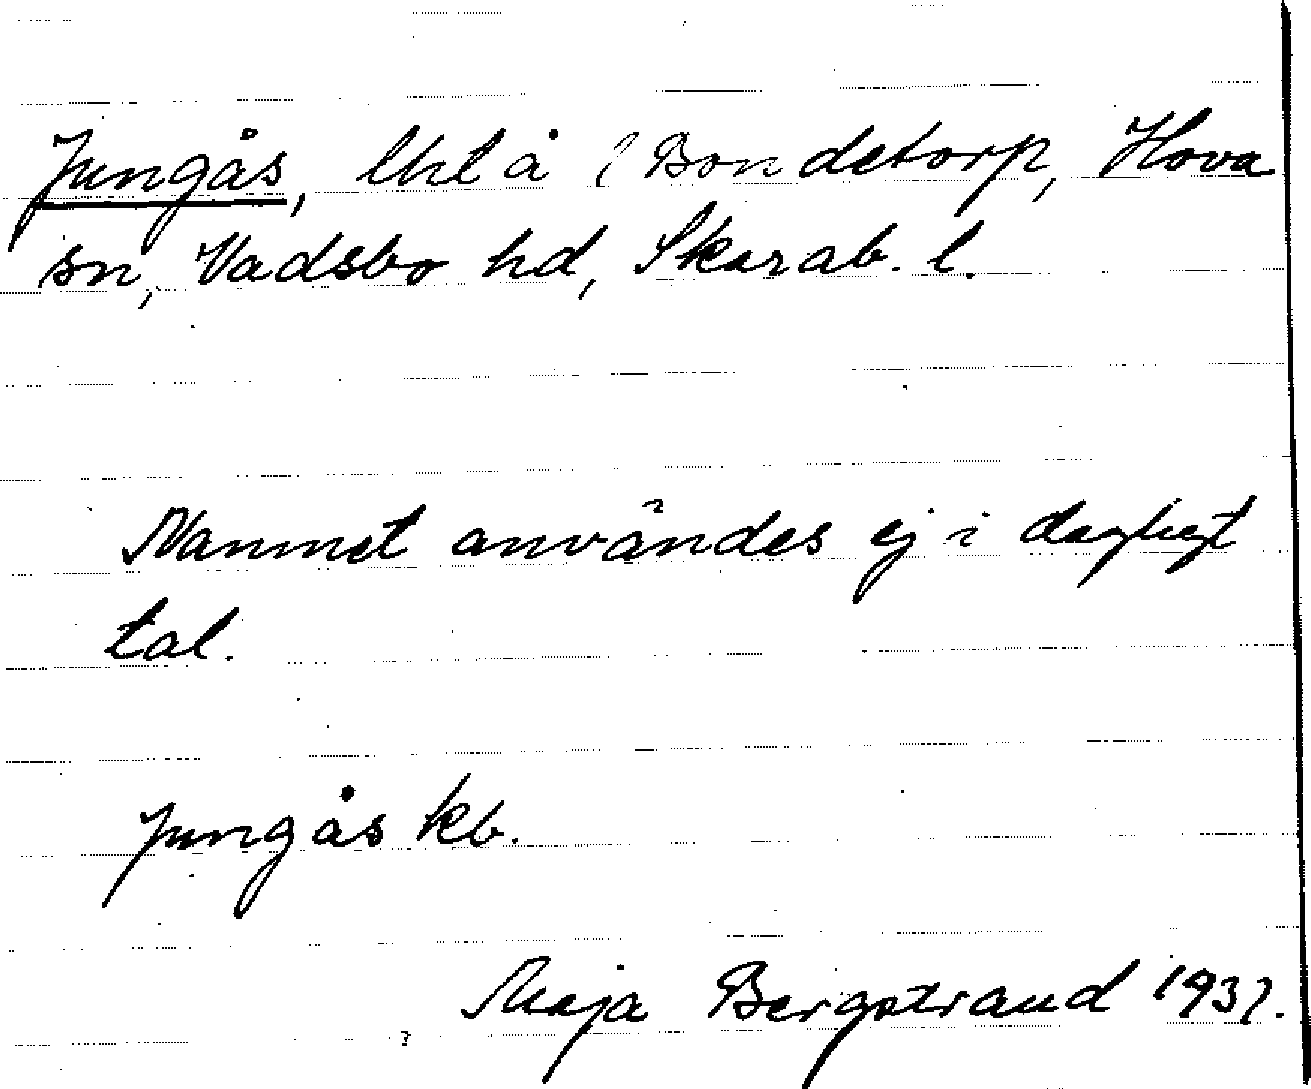 Jungås, lht å ( Bondetorp, Hova
sn, Vadsbo hd, Skarab. l.
Namnet användes ej i dagligt
tal.
Jungås kb.
Maja Bergstrand 1937.